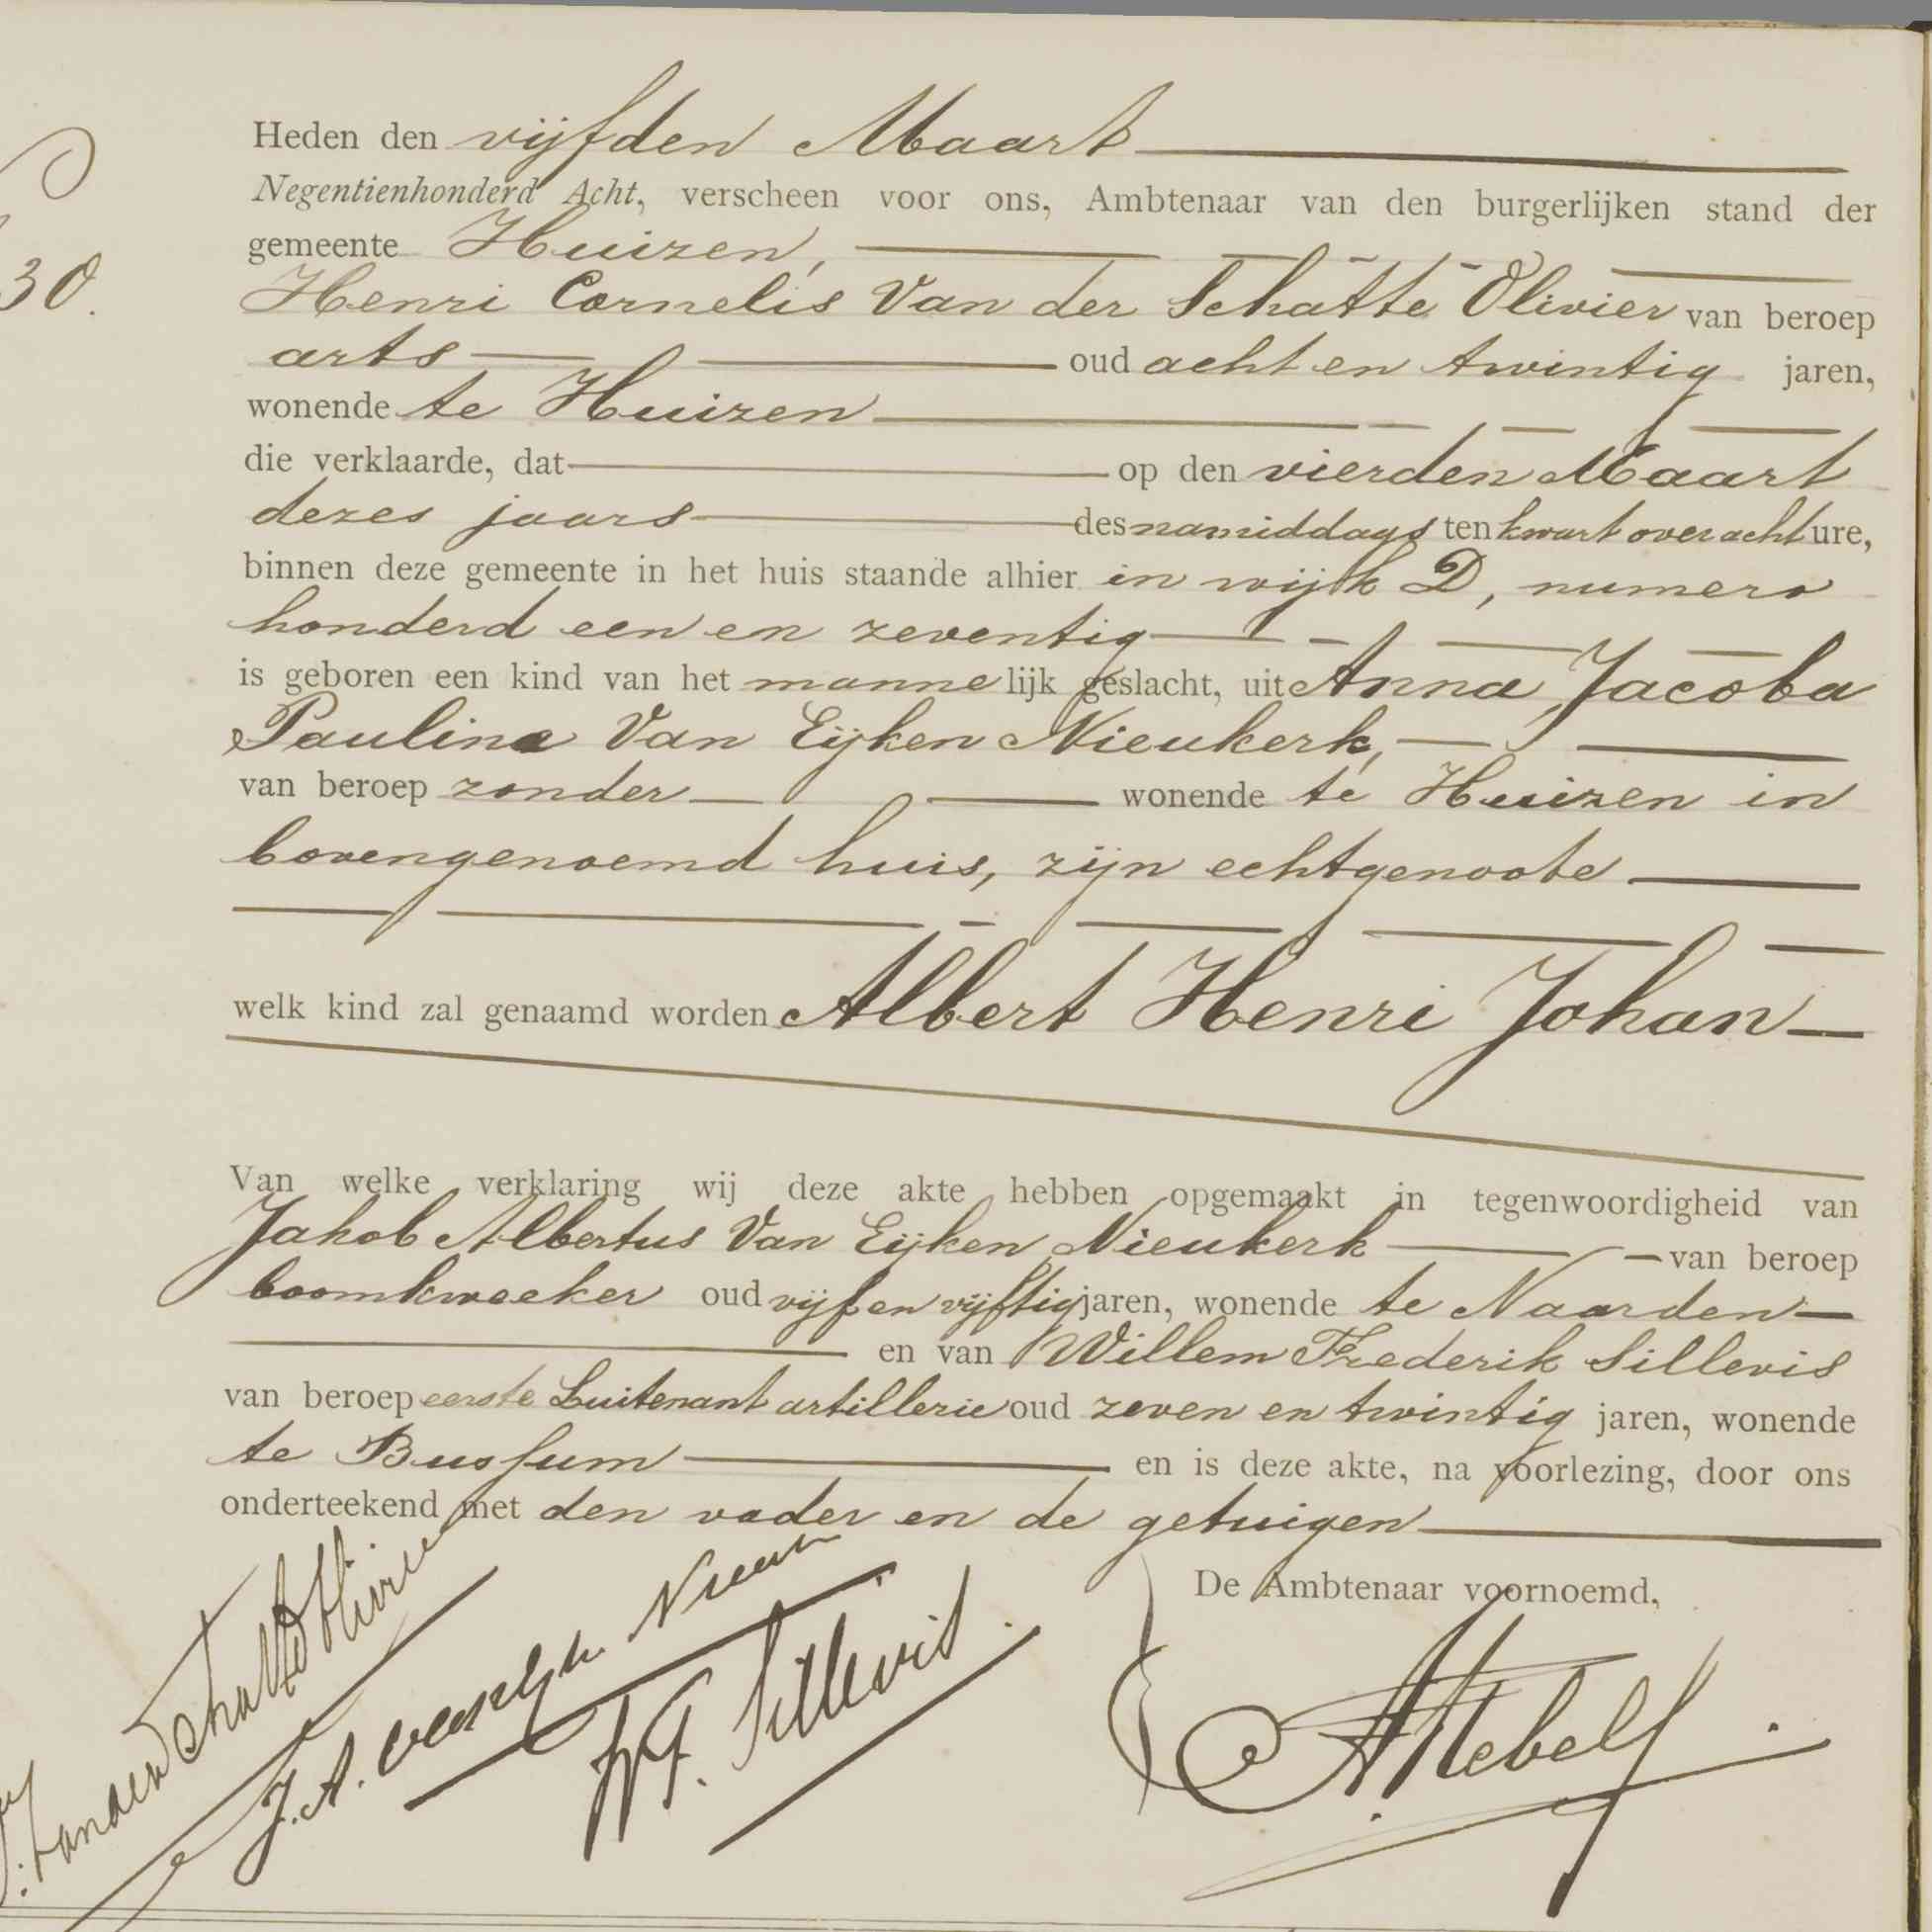 Heden den vijfden Maart
Negentienhonderd Acht, verscheen voor ons, Ambtenaar van den burgerlijken stand der
gemeente Huizen,
30.
Henri Cornelis Van der Schatte Olivier van beroep
arts oud acht en twintig jaren,
wonende te Huizen
die verklaarde, dat op den vierden Maart
dezes jaars des namiddags ten kwart over acht ure,
binnen deze gemeente in het huis staande alhier in wijk D, numero
honderd een en zeventig
is geboren een kind van het mannelijk geslacht, uit Anna Jacoba
Paulina Van Eijken Nieukerk,
van beroep zonder wonende te Huizen in
bovengenoemd huis, zijn echtgenoote
welk kind zal genaamd worden Albert Henri Johan
Van welke verklaring wij deze akte hebben opgemaakt in tegenwoordigheid van
Jakob Albertus Van Eijken Nieukerk van beroep
boomkweeker oud vijf en vijftig jaren, wonende te Naarden
en van Willem Frederik Sillevis
van beroep eerste Luitenant artillerie oud zeven en twintig jaren, wonende
te Bussum en is deze akte, na voorlezing, door ons
onderteekend met den vader en de getuigen
De Ambtenaar voornoemd,
van der Schatte Olivier
J. A. van Eyken Nieuk
W. F. Sillevis.